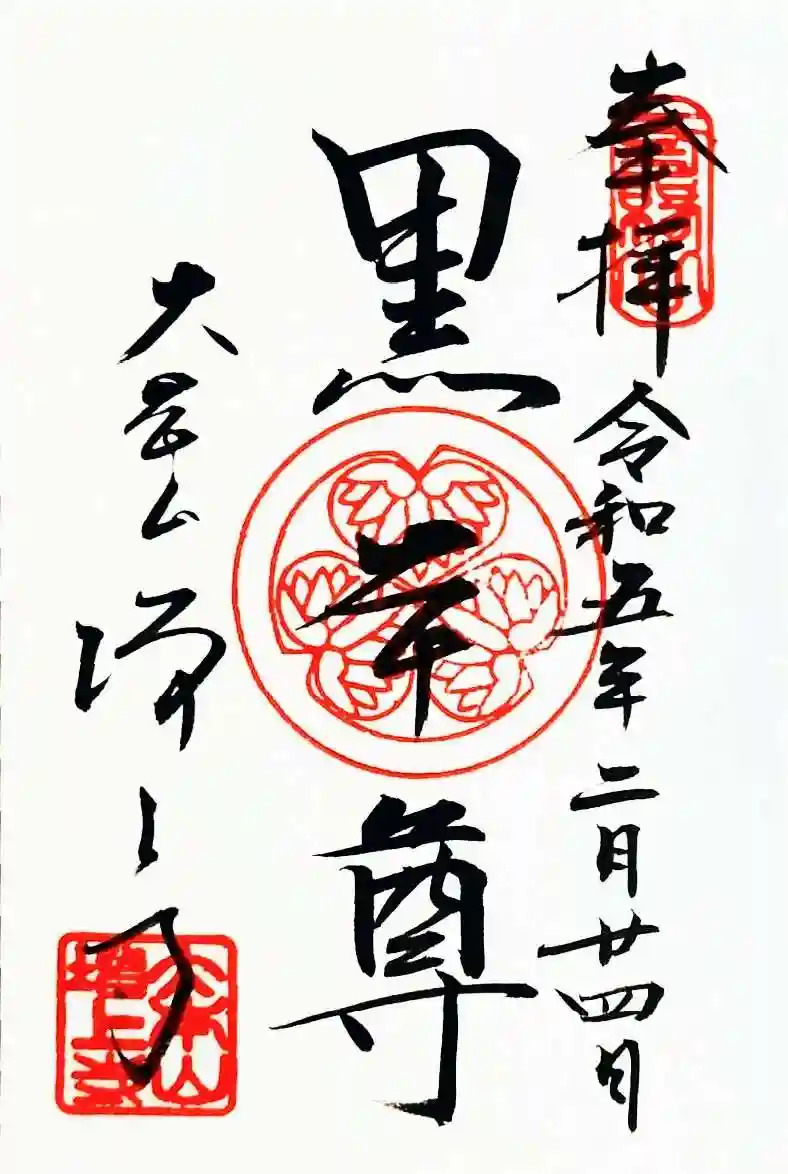 奉拝 令和五年 二月廿四日
黒本尊
大本山 増上寺